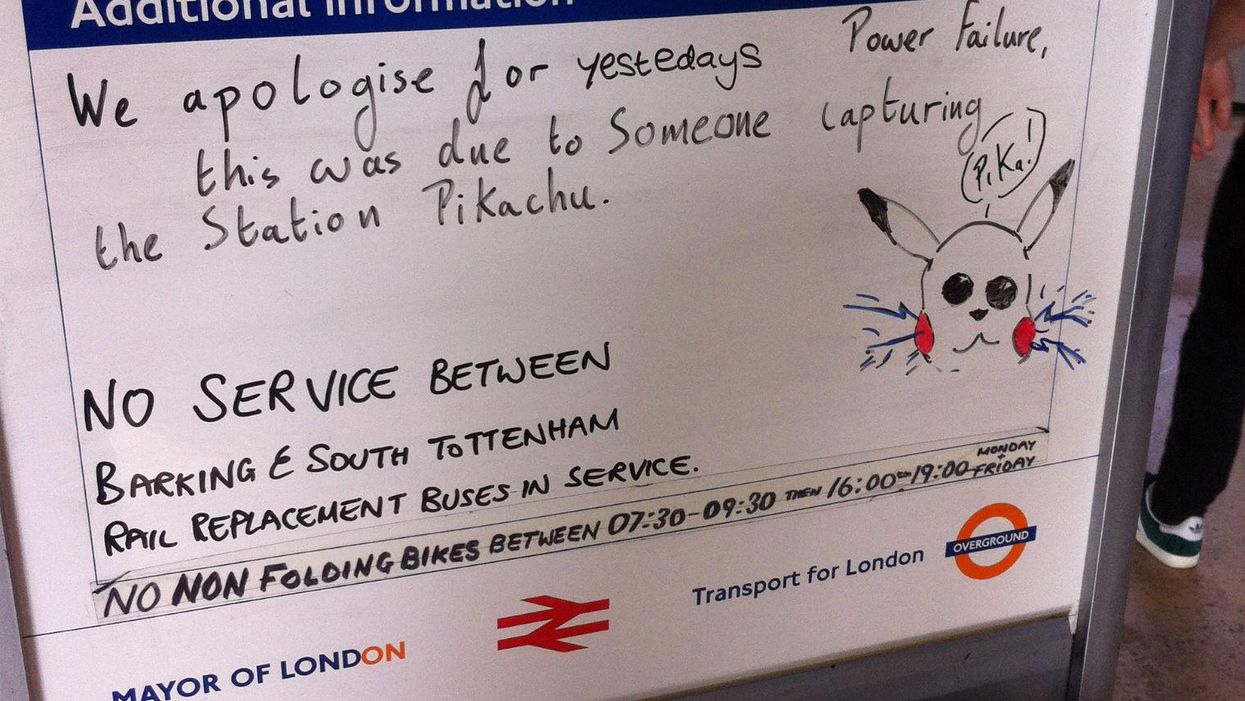 Additional Information
We apologise for yestedays Power Failure,
this was due to Someone capturing
the Station Pikachu.
PiKa!
NO SERVICE BETWEEN
BARKING & SOUTH TOTTENHAM
RAIL REPLACEMENT BUSES IN SERVICE.
NO NON FOLDING BIKES BETWEEN 07:30-09:30 THEN 16:00-19:00 MONDAY + FRIDAY
Transport for London
OVERGROUND
MAYOR OF LONDON